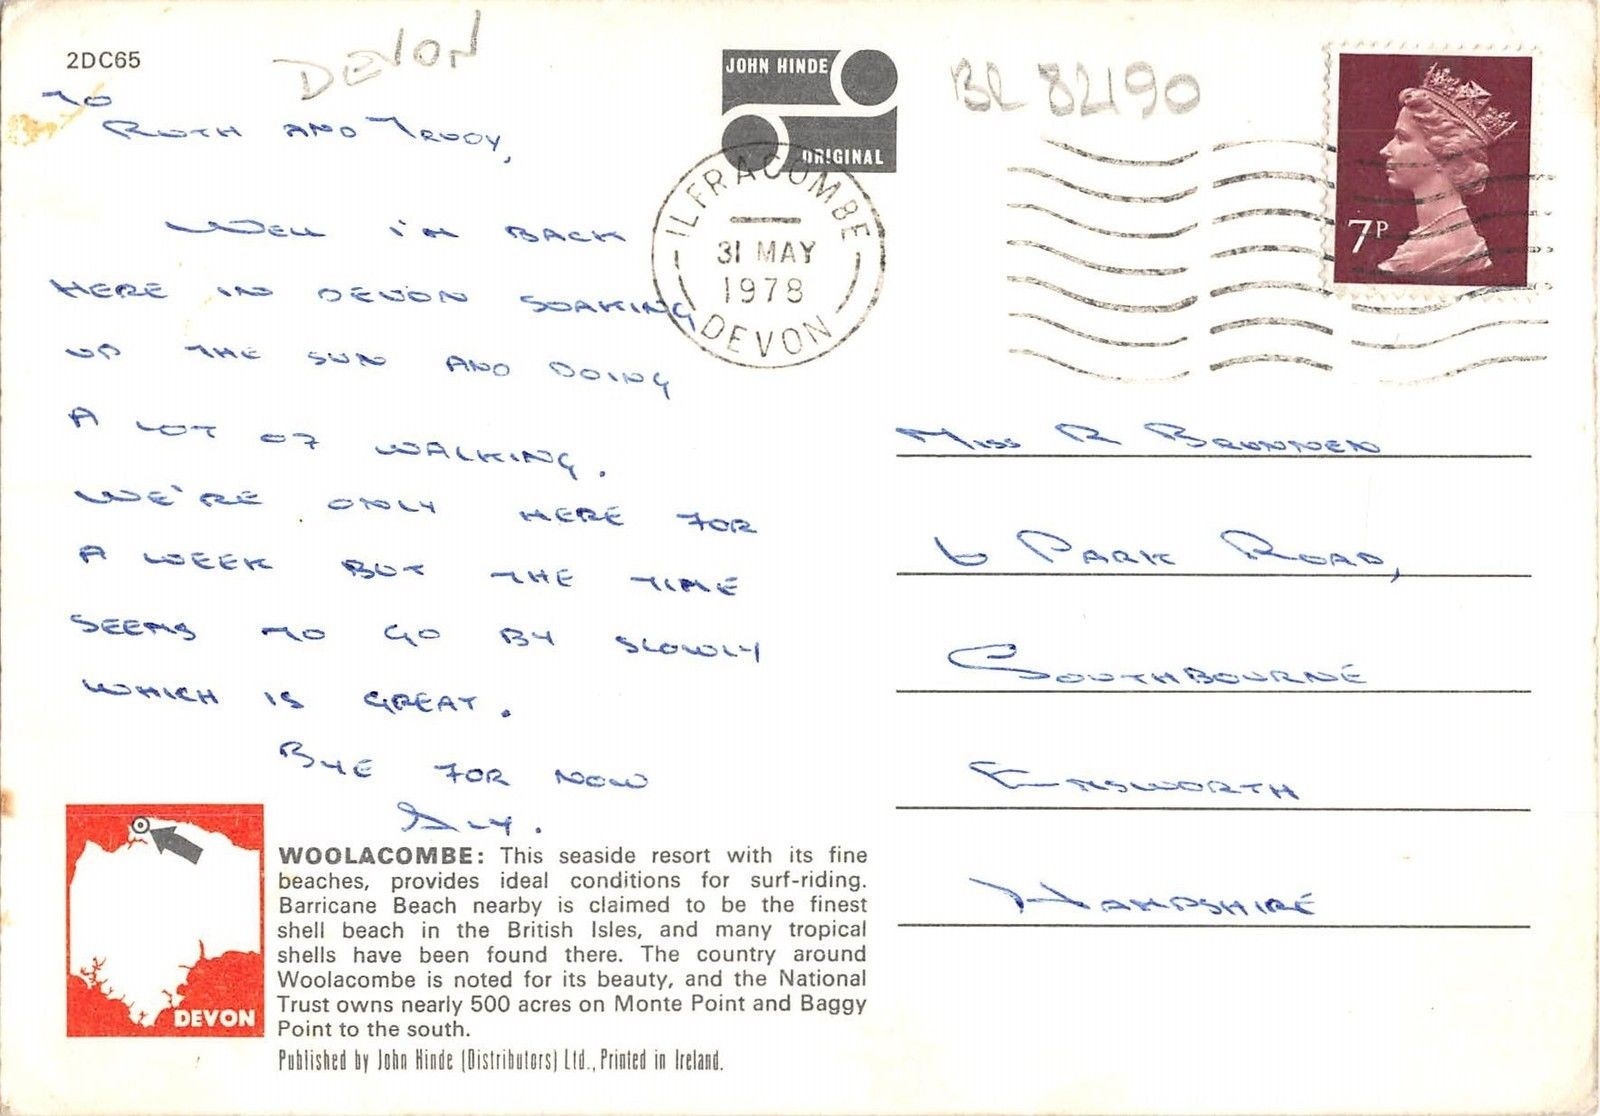 2DC65
DEVON
TO
RUTH AND TRUDY,
WELL I'M BACK
HERE IN DEVON SOAKING
UP THE SUN AND DOING
A LOT OF WALKING.
WE'RE ONLY HERE FOR
A WEEK BUT THE TIME
SEEMS TO GO BY SLOWLY
WHICH IS GREAT.
BYE FOR NOW
DEVON
WOOLACOMBE: This seaside resort with its fine
beaches, provides ideal conditions for surf-riding.
Barricane Beach nearby is claimed to be the finest
shell beach in the British Isles, and many tropical
shells have been found there. The country around
Woolacombe is noted for its beauty, and the National
Trust owns nearly 500 acres on Monte Point and Baggy
Point to the south.
Published by John Hinde (Distributors) Ltd., Printed in Ireland.
JOHN HINDE
ORIGINAL
ILFRACOMBE
31 MAY
1978
DEVON
7P
MISS R BRUNNEN
6 PARK ROAD,
SOUTHBOURNE
EMSWORTH
HAMPSHIRE